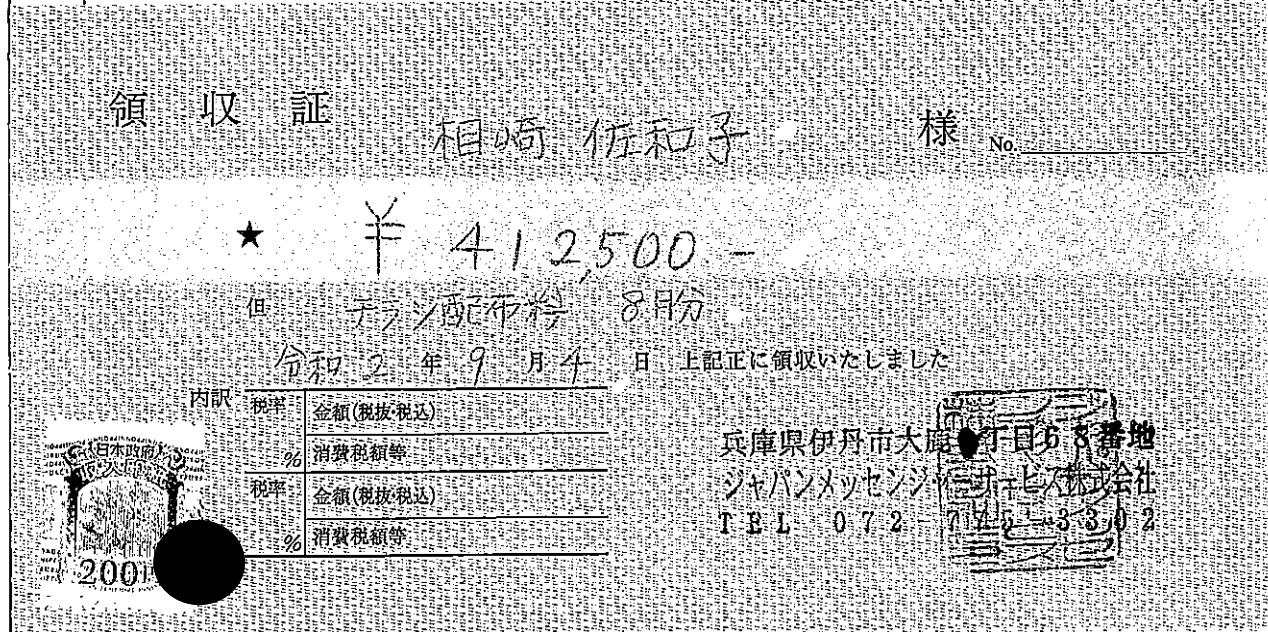 領収証 相崎 佐和子 様 No.
★ ¥ 412,500 -
但 チラシ配布料 8月分
令和 2 年 9 月 4 日 上記正に領収いたしました
内訳
税率 金額(税抜・税込)
% 消費税額等
税率 金額(税抜・税込)
% 消費税額等
日本政府
200
兵庫県伊丹市大鹿 丁目68番地
ジャパンメッセンジャーサービス株式会社
TEL 072-775-3302